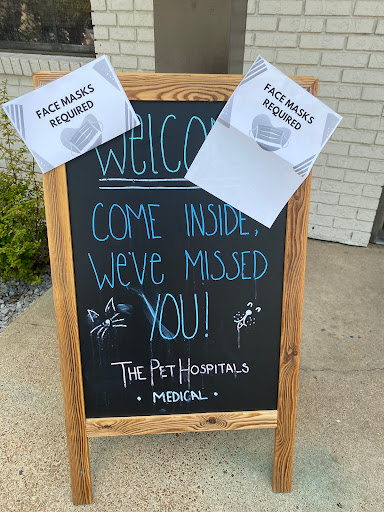 FACE MASKS
REQUIRED
FACE MASKS
REQUIRED
COME INSIDE,
WE'VE MISSED
YOU!
THE PET HOSPITALS
• MEDICAL •